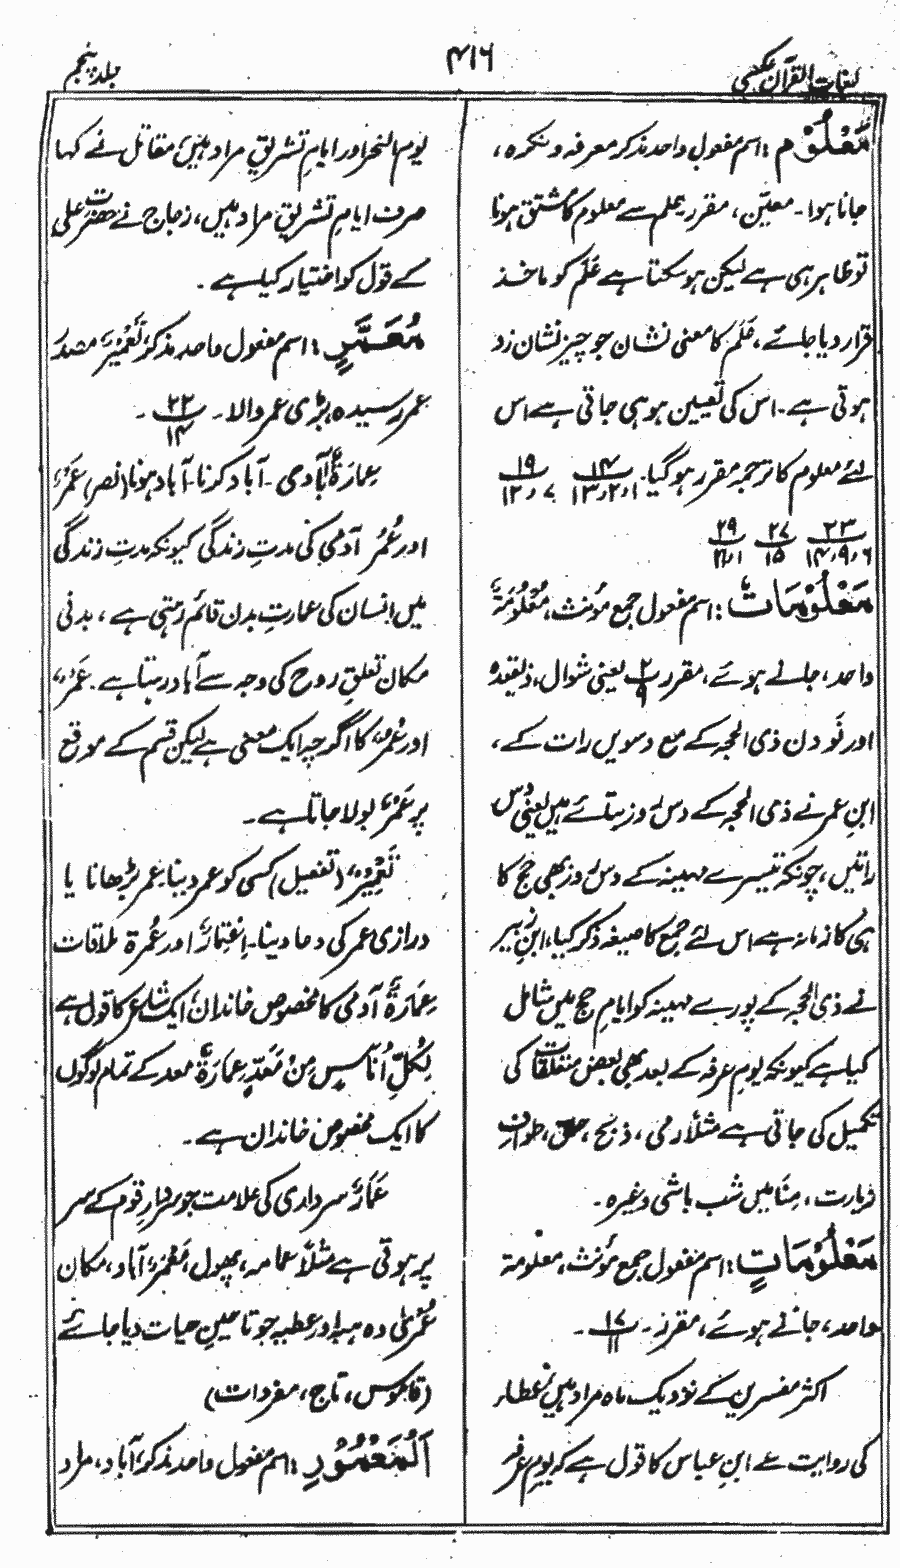 لغات القرآن عکسی
۴۱۶
جلد پنجم
مَعْلُوْم : اسم مفعول واحد مذکر معرفہ ونکرہ،
جانا ہوا۔ معیّن، مقرر علم سے معلوم کا مشتق ہونا
تو ظاہر ہی ہے لیکن ہو سکتا ہے عَلَم کو ماخذ
قرار دیا جائے، عَلَم کا معنی نشان جو چیز نشان زد
ہوتی ہے۔ اس کی تعیین ہو ہی جاتی ہے اس
لئے معلوم کا ترجمہ مقرر ہوگیا۔ ۱۴ ۱۹
۱،۲،۱۳ ۷،۱۲
۲۳ ۲۷ ۲۹
۶،۹،۱۴ ۱۵
مَعْلُوْمَاتٌ : اسم مفعول جمع مؤنث، مَعْلُوْمَۃٌ
واحد، جانے ہوئے، مقرر ۲/۹ یعنی شوال، ذیقعدہ
اور نَو دن ذی الحجہ کے مع دسویں رات کے،
ابنِ عمر نے ذی الحجہ کے دس روز بتائے ہیں یعنی دس
راتیں، چونکہ تیسرے مہینہ کے دس روز بھی حج کا
ہی کا زمانہ ہے اس لئے جمع کا صیغہ ذکر کیا، ابنِ زبیر
نے ذی الحجہ کے پورے مہینہ کو ایامِ حج میں شامل
کیا ہے کیونکہ یومِ عرفہ کے بعد بھی بعض متعلقات کی
تکمیل کی جاتی ہے مثلاً رمی، ذبح، حلق، طوافِ
زیارت، مِنٰا میں شب باشی وغیرہ۔
مَعْلُوْمَاتٍ : اسم مفعول جمع مؤنث، معلومۃ
واحد، جانے ہوئے، مقرر۔ ۱۷/۱۱ ۔
اکثر مفسرین کے نزدیک ماہ مراد ہیں عطاء
کی روایت سے ابنِ عباس کا قول ہے کہ یومِ عرفہ
یوم النحر اور ایامِ تشریقِ مراد ہیں، مقاتل نے کہا
صرف ایامِ تشریق مراد ہیں، زجاج نے حضرت علی
کے قول کو اختیار کیا ہے۔
مُعَمَّرٍ : اسم مفعول واحد مذکر تَعْمِیْرٌ مصدر
عمر رسیدہ، بڑی عمر والا۔ ۲۲/۱۴ ۔
عِمَارَۃٌ آبادی۔ آباد کرنا۔ آباد ہونا (نصر) عَمْرٌ
اور عُمُر آدمی کی مدتِ زندگی کیونکہ مدتِ زندگی
میں انسان کی عمارتِ بدن قائم رہتی ہے، بدنی
مکان تعلقِ روح کی وجہ سے آباد رہتا ہے۔ عَمْرٌ
اور عُمُرٌ کا اگرچہ ایک معنی ہے لیکن قسم کے موقع
پر عَمْرٌ بولا جاتا ہے۔
تَعْمِیْرٌ (تفعیل) کسی کو عمر دینا عمر بڑھانا یا
درازی عمر کی دعا دینا۔ اِعْتِمَارٌ اور عُمْرۃ ملاقات
عِمَارَۃٌ آدمی کا مخصوص خاندان، ایک شاعر کا قول ہے
لِکُلِّ اُنَاسٍ مِنْ مَعَدٍّ عِمَارَۃٌ معد کے تمام لوگوں
کا ایک مخصوص خاندان ہے۔
عَمَارٌ سرداری کی علامت جو سردارِ قوم کے سر
پر ہوتی ہے مثلاً عمامہ، پھول، مَعْمَرٌ آباد، مکان
عُمْرٰی وہ ہبہ اور عطیہ جو تا حینِ حیات دیا جائے
(قاموس، تاج، مفردات)
اَلْمَعْمُوْرِ : اسم مفعول واحد مذکر، آباد، مراد